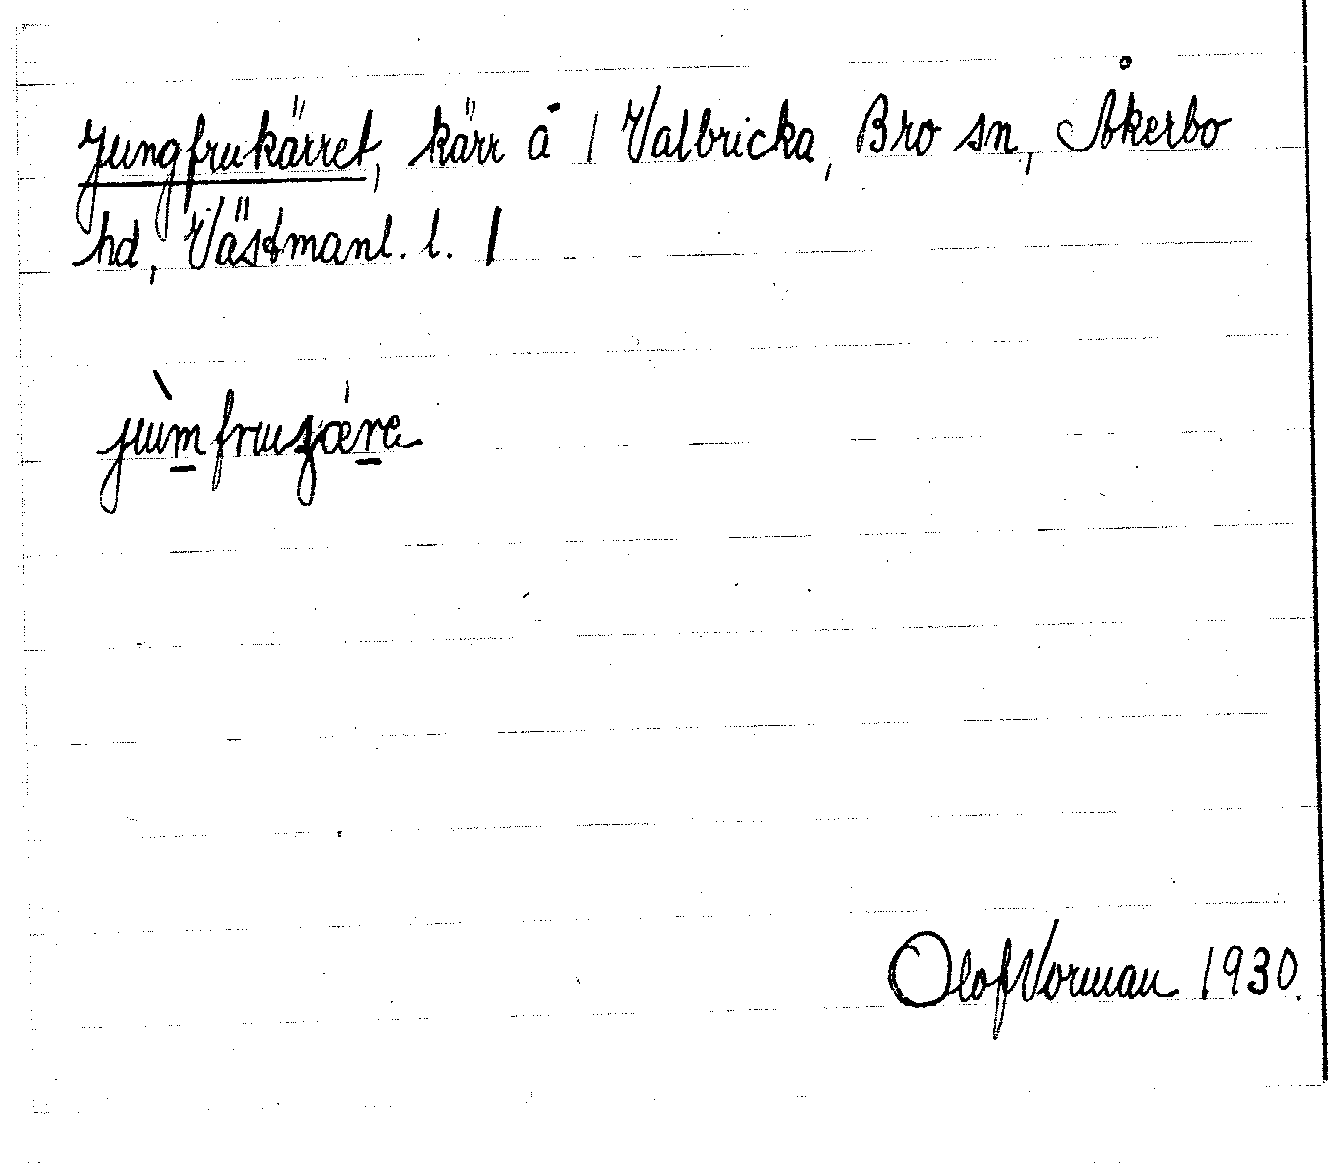 Jungfrukärret, kärr å / Valbricka, Bro sn, Åkerbo
hd, Västmanl. l. /
Olof Vorman 1930.